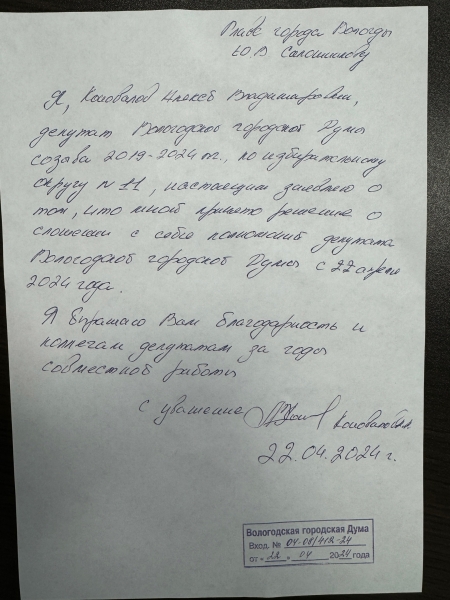 Главе города Вологды
Ю.В Сапожникову
Я, Коновалов Алексей Владимирович,
депутат Вологодской городской Думы
созыва 2019-2024 гг., по избирательному
округу № 11, настоящим заявляю о
том, что мной принято решение о
сложении с себя полномочий депутата
Вологодской городской Думы с 22 апреля
2024 года.
Я выражаю Вам благодарность и
коллегам депутатам за годы
совместной работы
с уважением Коновалов А.В.
22.04.2024 г.
Вологодская городская Дума
Вход. № 04-08/412-24
от « 22 » 04 2024 года